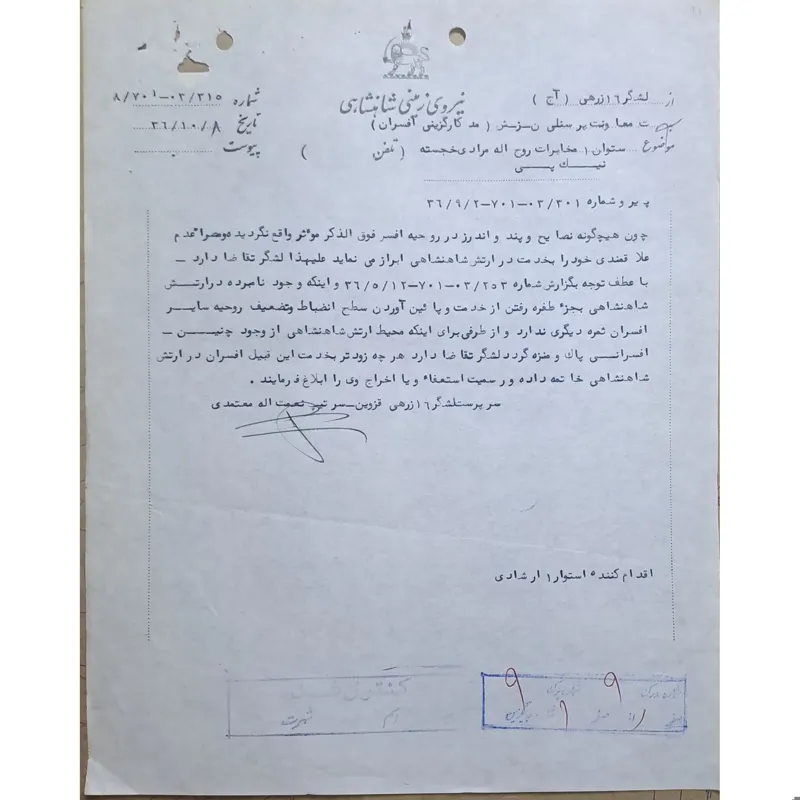 نیروی زمینی شاهنشاهی
از لشگر ۱۶ زرهی (آج)
شماره ۸/۷۰۱-۰۳/۳۱۵
به ت معاونت پرسنلی نزش (مد کارگزینی افسران)
تاریخ ۳۶/۱۰/۸
موضوع ستوان ۱ مخابرات روح اله مرادی خجسته (تلفن )
پیوست
نیک پی
پیرو شماره ۳۶/۹/۲-۷۰۱-۰۳/۳۰۱
چون هیچگونه نصایح و پند و اندرز در روحیه افسر فوق الذکر موثر واقع نگردیده و مصرا عدم
علاقمندی خود را بخدمت در ارتش شاهنشاهی ابراز می نماید علیهذا لشگر تقاضا دارد –
با عطف توجه بگزارش شماره ۳۶/۵/۱۲-۷۰۱-۰۳/۲۵۳ و اینکه وجود نامبرده در ارتش
شاهنشاهی بجزء طفره رفتن از خدمت و پائین آوردن سطح انضباط و تضعیف روحیه سایر
افسران ثمره دیگری ندارد و از طرفی برای اینکه محیط ارتش شاهنشاهی از وجود چنین –
افسرانی پاک و منزه گردد لشگر تقاضا دارد هر چه زودتر بخدمت این قبیل افسران در ارتش
شاهنشاهی خاتمه داده و رسمیت استعفاء و یا اخراج وی را ابلاغ فرمایند .
سرپرست لشگر ۱۶ زرهی قزوین-سرتیپ نعمت اله معتمدی
اقدام کننده استوار ۱ ارشادی
شماره برگ ۹ ۹
کنترل شد
اسم شهرت